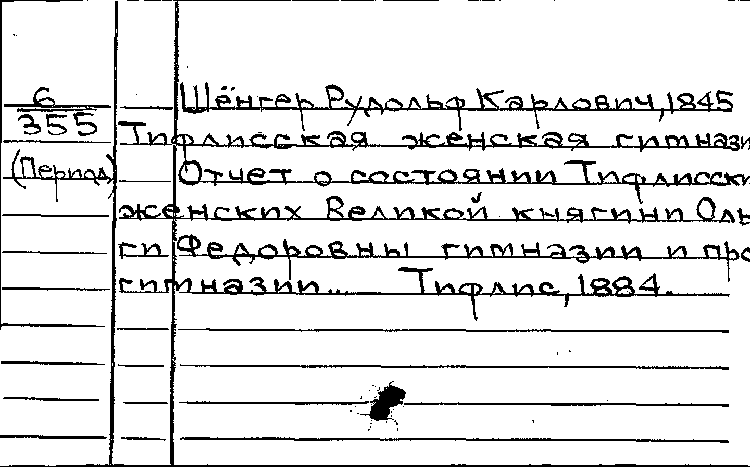 6
355
(Период)
Шёнгер Рудольф Карлович, 1845
Тифлисская женская гимнази
Отчет о состоянии Тифлисски
женских Великой княгини Оль
ги Федоровны гимназии и про
гимназии... Тифлис, 1884.